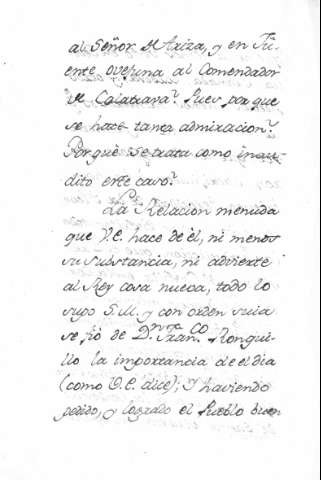 al Señor de Ariza, y en Fu-
ente ovejuna al Comendador
de Calatrava? Pues por que
se hace tanta admiracion?
Por què se trata como inau-
dito este caso?
La Relacion menuda
que V.E. hace de èl, ni menos
su substancia, ni advierte
al Rey cosa nueva, todo lo
supo S.M. y con orden suia
se fiò de D.n Fran.co Ronqui-
llo la importancia de el dia
(como V.E. dice); Y haviendo
pedido, y logrado el Pueblo buen